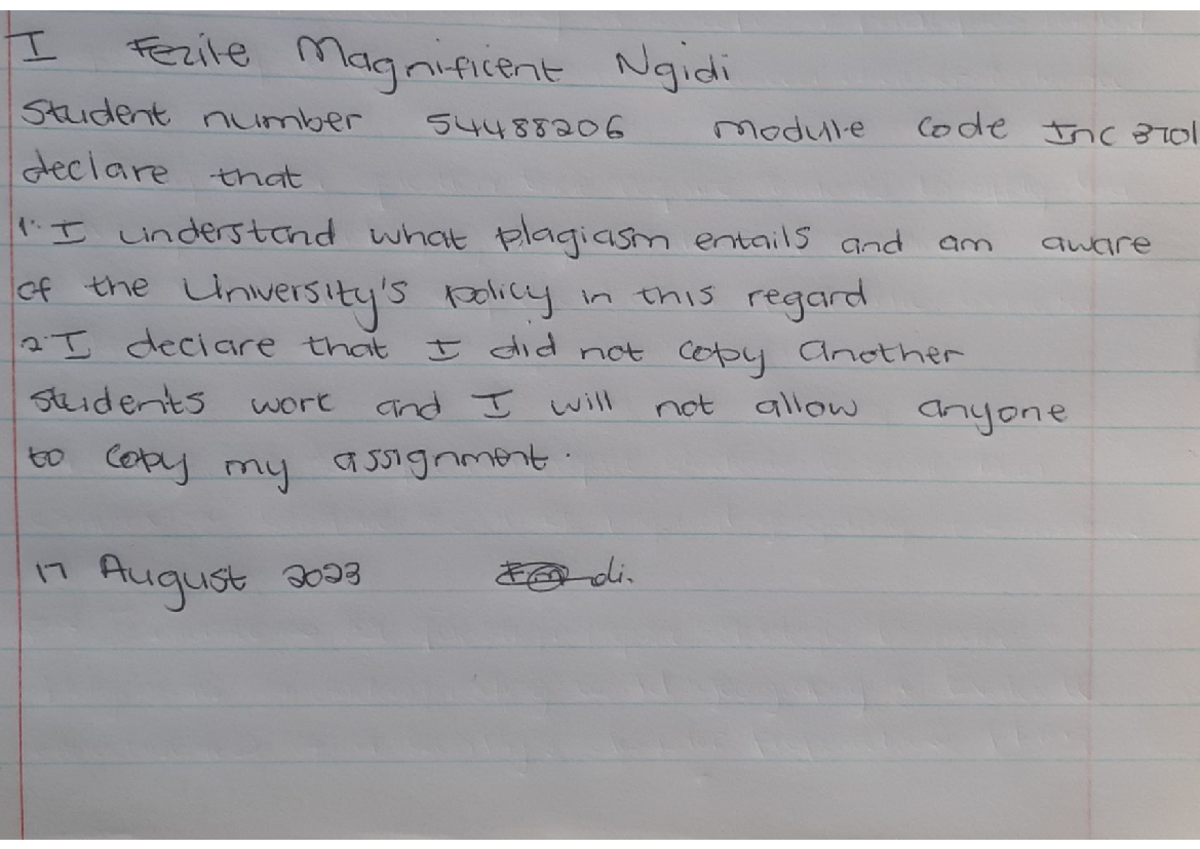 I Fezile Magnificent Ngidi
Student number 54488206 module code Inc 3701
declare that
1. I understand what plagiasm entails and am aware
of the University's policy in this regard
2 I declare that I did not copy another
students work and I will not allow anyone
to copy my assignment.
17 August 2023